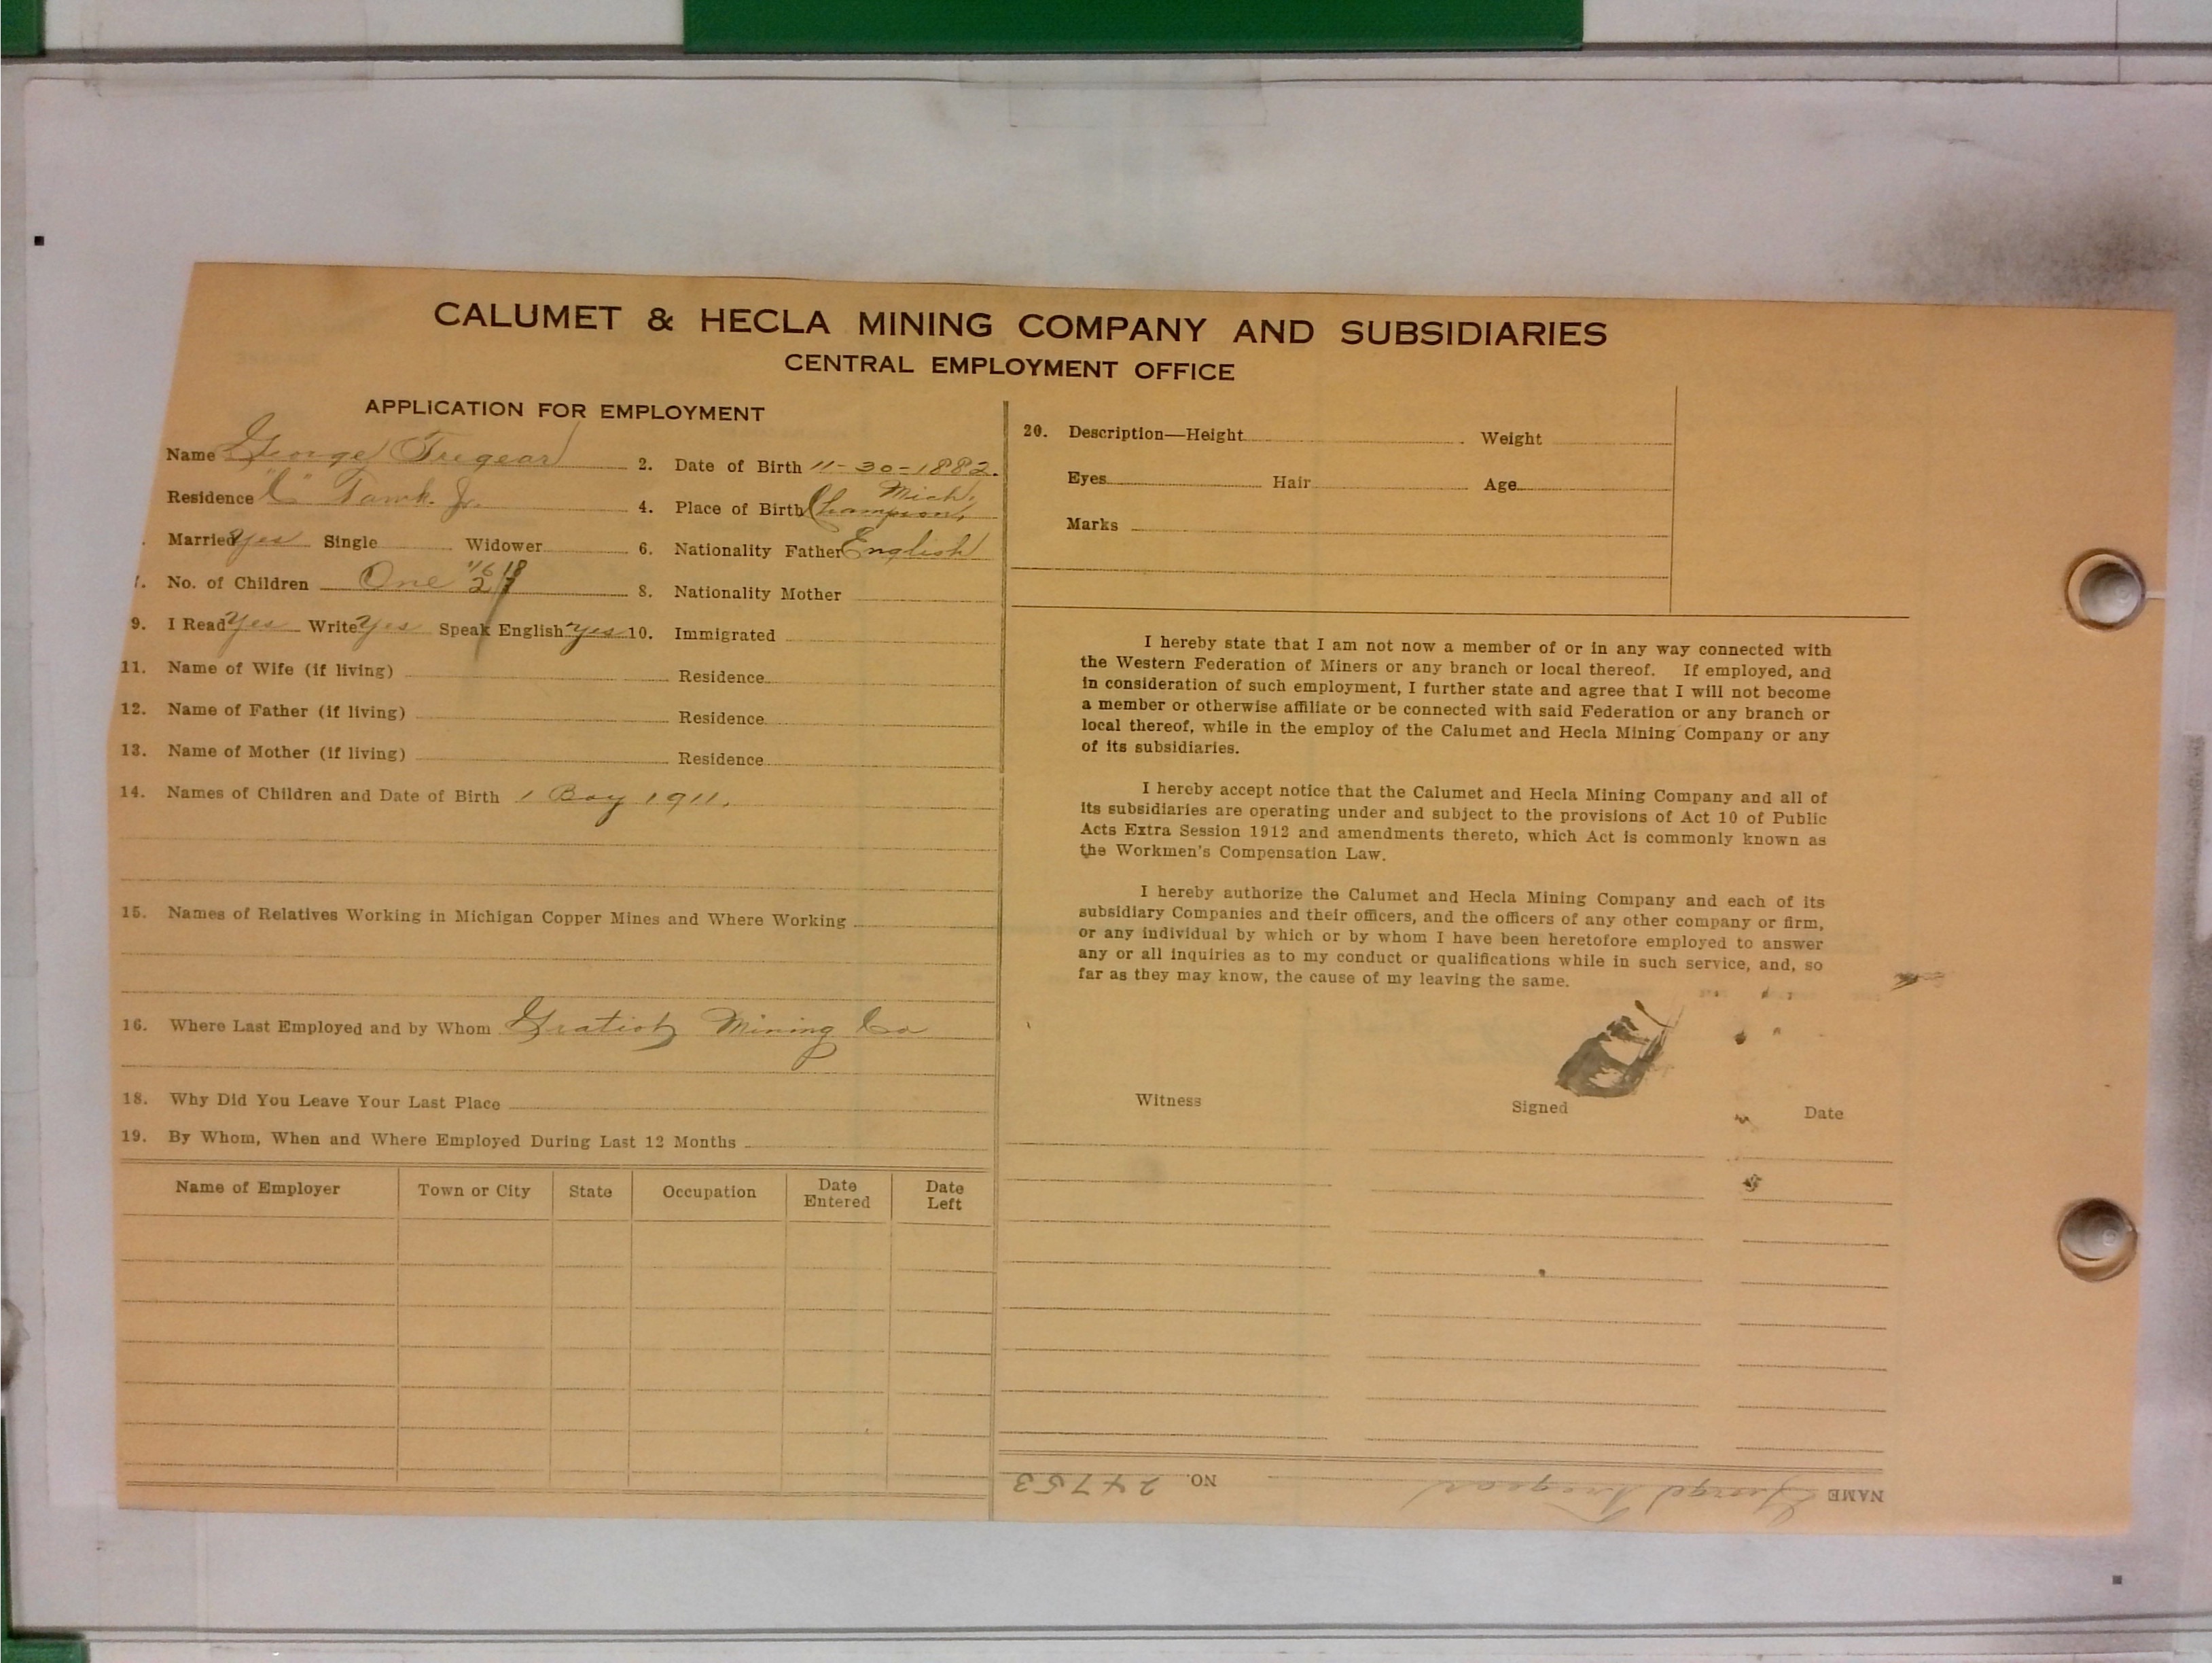 CALUMET & HECLA MINING COMPANY AND SUBSIDIARIES
CENTRAL EMPLOYMENT OFFICE
APPLICATION FOR EMPLOYMENT
Name George Tregear
2. Date of Birth 11-30-1882.
Residence "C" Tamk. Jr.
4. Place of Birth Champion, Mich.
Married Yes Single Widower
6. Nationality Father English
7. No. of Children One
8. Nationality Mother
9. I Read Yes Write Yes Speak English Yes 10. Immigrated
11. Name of Wife (if living) Residence
12. Name of Father (if living) Residence
13. Name of Mother (if living) Residence
14. Names of Children and Date of Birth 1 Boy 1911.
15. Names of Relatives Working in Michigan Copper Mines and Where Working
16. Where Last Employed and by Whom Gratiot Mining Co
18. Why Did You Leave Your Last Place
19. By Whom, When and Where Employed During Last 12 Months
Name of Employer Town or City State Occupation Date Entered Date Left
20. Description—Height Weight
Eyes Hair Age
Marks
I hereby state that I am not now a member of or in any way connected with
the Western Federation of Miners or any branch or local thereof. If employed, and
in consideration of such employment, I further state and agree that I will not become
a member or otherwise affiliate or be connected with said Federation or any branch or
local thereof, while in the employ of the Calumet and Hecla Mining Company or any
of its subsidiaries.
I hereby accept notice that the Calumet and Hecla Mining Company and all of
its subsidiaries are operating under and subject to the provisions of Act 10 of Public
Acts Extra Session 1912 and amendments thereto, which Act is commonly known as
the Workmen's Compensation Law.
I hereby authorize the Calumet and Hecla Mining Company and each of its
subsidiary Companies and their officers, and the officers of any other company or firm,
or any individual by which or by whom I have been heretofore employed to answer
any or all inquiries as to my conduct or qualifications while in such service, and, so
far as they may know, the cause of my leaving the same.
Witness Signed Date
NAME George Tregear NO. 24753